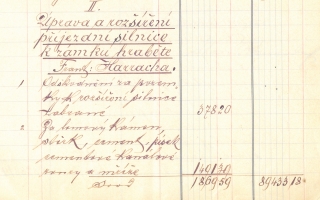 II.
Úprava a rozšíření
příjezdní silnice
k zámku hraběte
Frant. Harracha.
1 Odškodnění za pozem
ky k rozšíření silnice
zabrané 37820
2 Za lomový kámen,
štěrk, cement, písek
cementové kanálové
roury a mříže 149139
186959 8943518